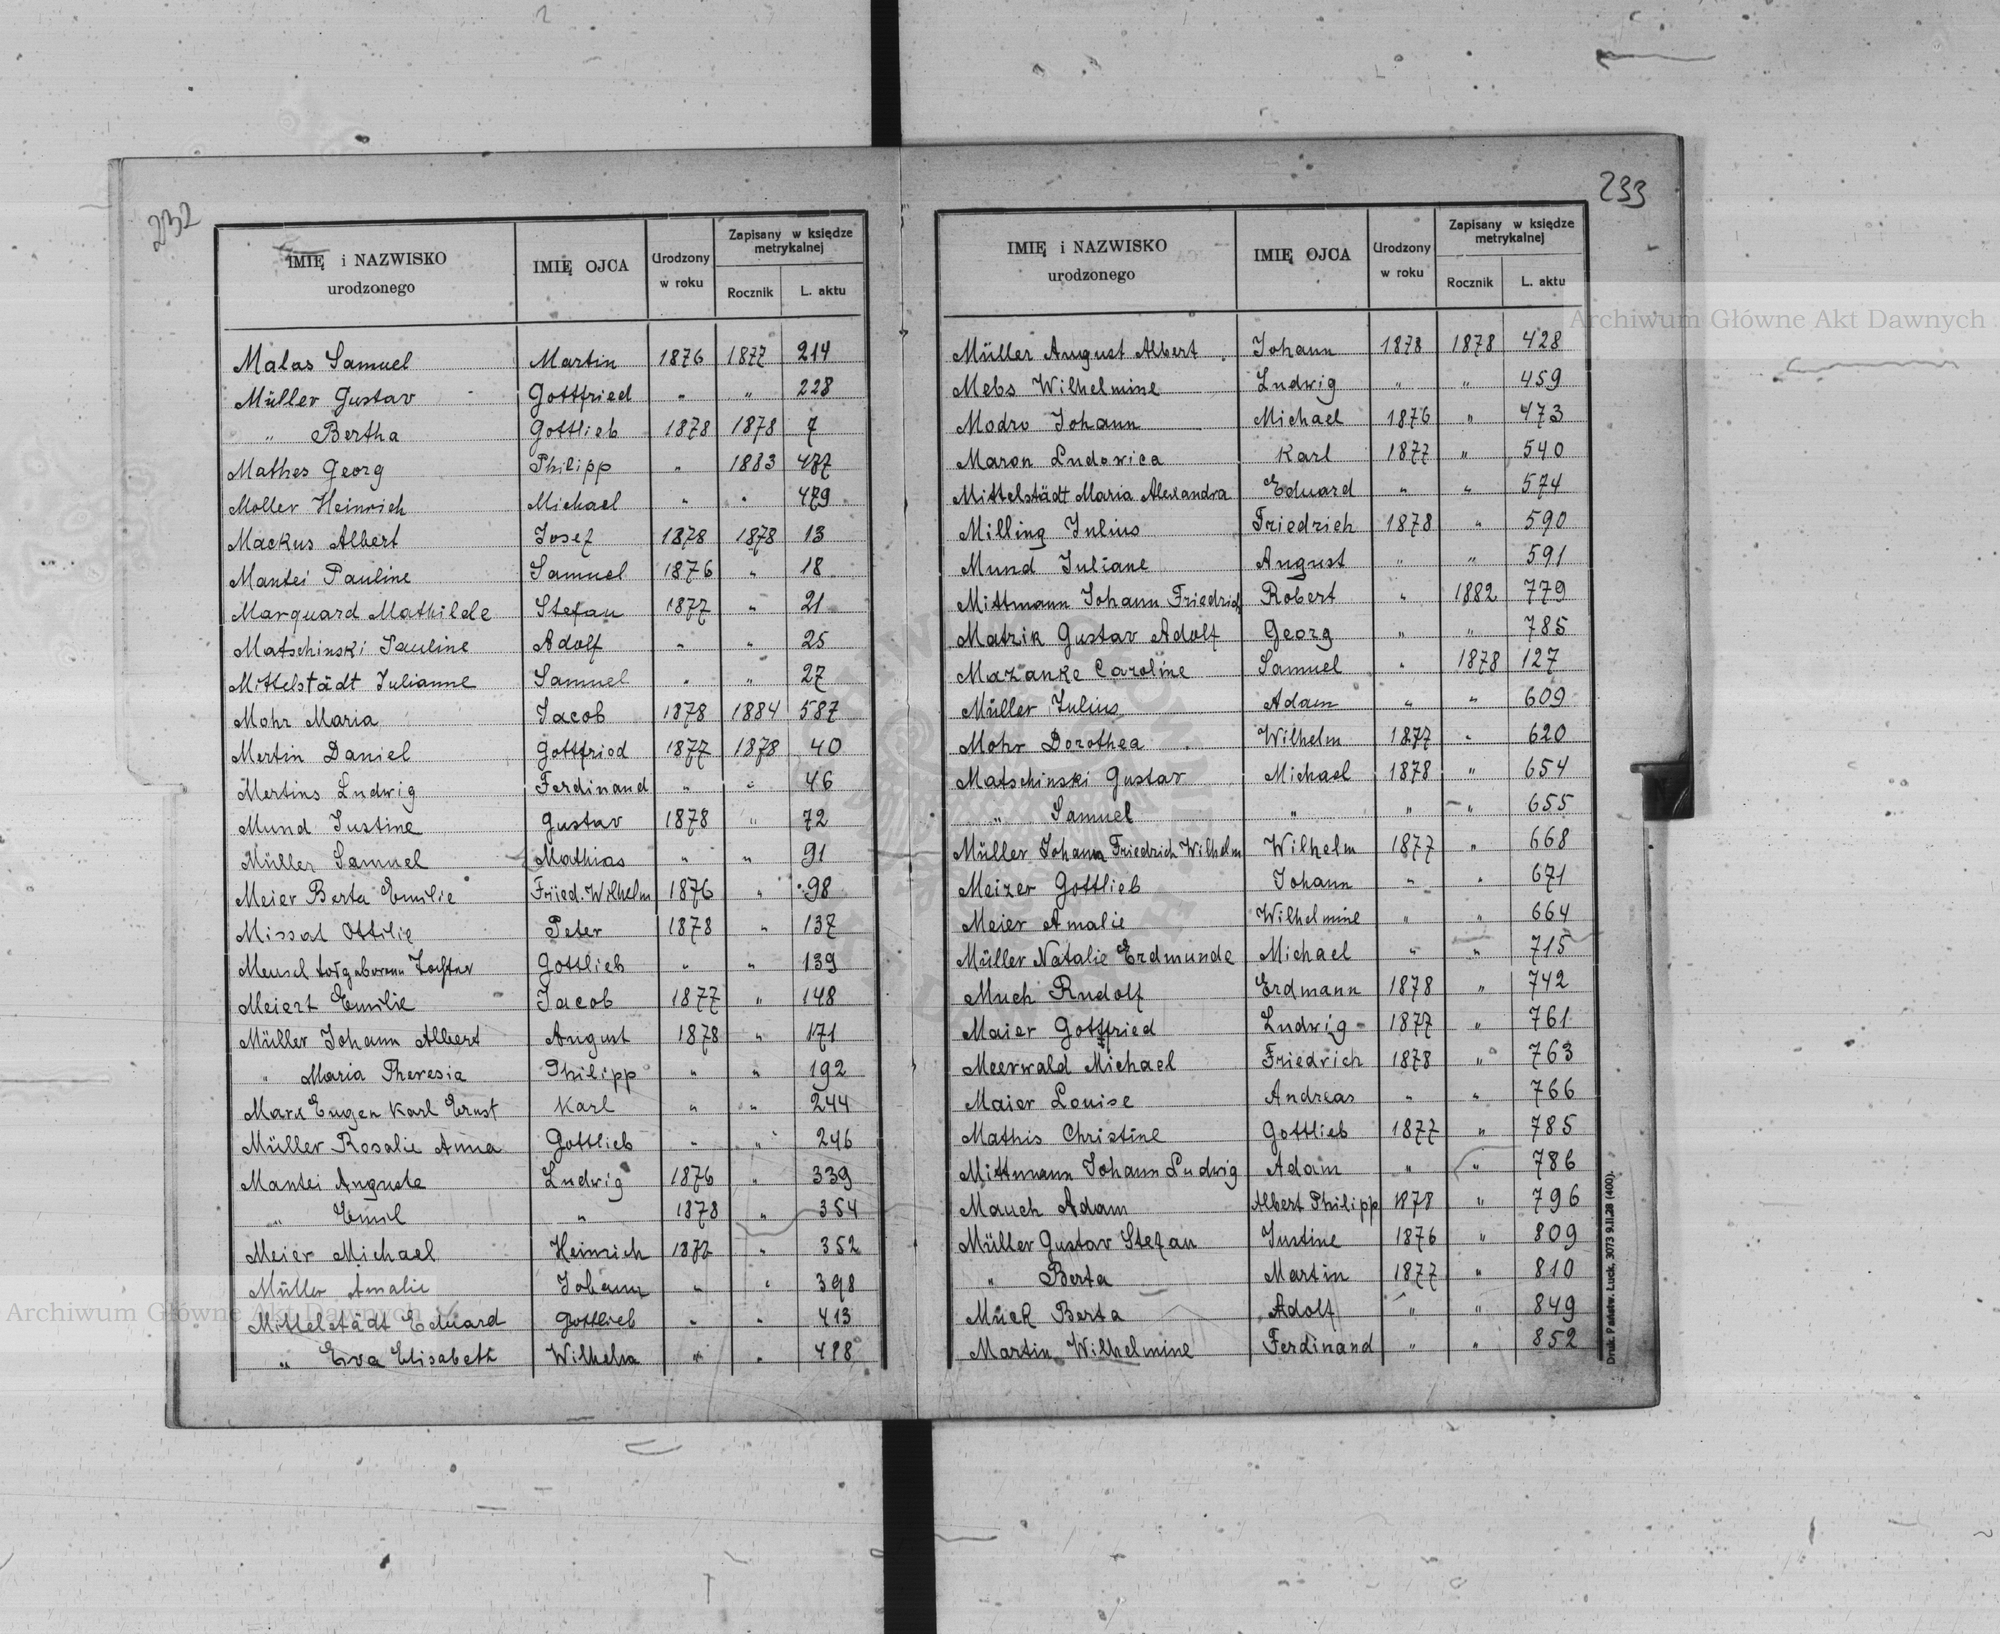 232
IMIĘ i NAZWISKO urodzonego IMIĘ OJCA Urodzony w roku Zapisany w księdze metrykalnej Rocznik L. aktu
Malas Samuel Martin 1876 1877 214
Müller Gustav Gottfried " " 228
" Bertha Gottlieb 1878 1878 7
Mathes Georg Philipp " 1883 477
Moller Heinrich Michael " " 479
Mackus Albert Josef 1878 1878 13
Mantei Pauline Samuel 1876 " 18
Marquard Mathilde Stefan 1877 " 21
Matschinski Pauline Adolf " " 25
Mittelstädt Julianne Samuel " " 27
Mohr Maria Jacob 1878 1884 587
Mertin Daniel Gottfried 1877 1878 40
Mertins Ludwig Ferdinand " " 46
Mund Justine Gustav 1878 " 72
Müller Samuel Mathias " " 91
Meier Berta Emilie Fried. Wilhelm 1876 " 98
Missal Ottilie Peter 1878 " 137
Mensel Gottlieb " " 139
Meiert Emilie Jacob 1877 " 148
Müller Johann Albert August 1878 " 171
" Maria Theresia Philipp " " 192
Marx Eugen Karl Ernst Karl " " 244
Müller Rosalie Anna Gottlieb " " 246
Mantei Auguste Ludwig 1876 " 339
" Emil " 1878 " 354
Meier Michael Heinrich 1877 " 352
Müller Amalie Johann " " 398
Mittelstädt Eduard Gottlieb " " 413
" Eva Elisabeth Wilhelm " " 418
233
IMIĘ i NAZWISKO urodzonego IMIĘ OJCA Urodzony w roku Zapisany w księdze metrykalnej Rocznik L. aktu
Müller August Albert Johann 1878 1878 428
Mebs Wilhelmine Ludwig " " 459
Modro Johann Michael 1876 " 473
Maron Ludowica Karl 1877 " 540
Mittelstädt Maria Alexandra Eduard " " 574
Milling Julius Friedrich 1878 " 590
Mund Juliane August " " 591
Mittmann Johann Friedrich Robert " 1882 779
Matzik Gustav Adolf Georg " " 785
Mazanke Caroline Samuel " 1878 127
Müller Julius Adam " " 609
Mohr Dorothea Wilhelm 1877 " 620
Matschinski Gustav Michael 1878 " 654
" Samuel " " " 655
Müller Johann Friedrich Wilhelm Wilhelm 1877 " 668
Meizer Gottlieb Johann " " 671
Meier Amalie Wilhelmine " " 664
Müller Natalie Erdmunde Michael " " 715
Much Rudolf Erdmann 1878 " 742
Maier Gottfried Ludwig 1877 " 761
Meerwald Michael Friedrich 1878 " 763
Maier Louise Andreas " " 766
Mathis Christine Gottlieb 1877 " 785
Mittmann Johann Ludwig Adam " " 786
Mauch Adam Albert Philipp 1878 " 796
Müller Gustav Stefan Justine 1876 " 809
" Berta Martin 1877 " 810
Mück Berta Adolf " " 849
Martin Wilhelmine Ferdinand " " 852
Druk. Państw. Łuck, 3073 9.II.28 (400).
Archiwum Główne Akt Dawnych
Archiwum Główne Akt Dawnych